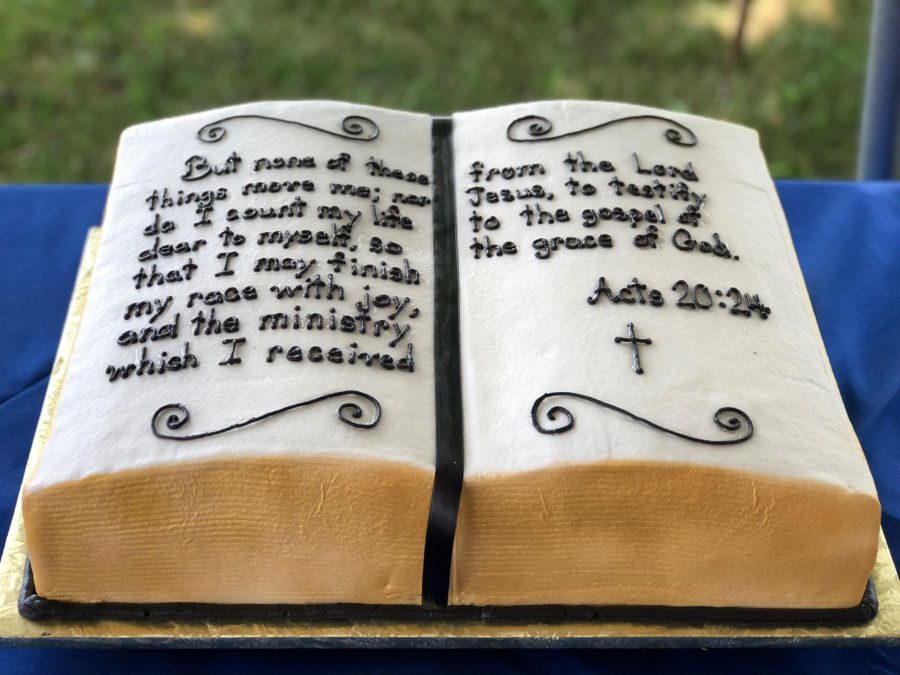 But none of these
things move me; nor
do I count my life
dear to myself, so
that I may finish
my race with joy,
and the ministry
which I received
from the Lord
Jesus, to testify
to the gospel of
the grace of God.
Acts 20:24